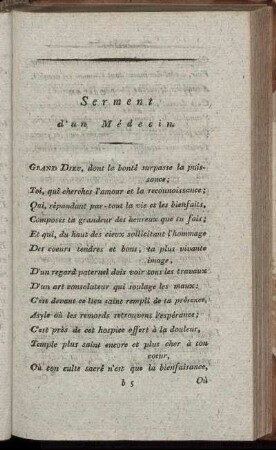 Serment
d'un Médecin.
GRAND DIEU, dont la bonté surpasse la puis-
sance;
Toi, qui cherches l'amour et la reconnoissance;
Qui, répandant par-tout la vie et les bienfaits,
Composes ta grandeur des heureux que tu fais;
Et qui, du haut des cieux sollicitant l'hommage
Des coeurs tendres et bons, ta plus vivante
image,
D'un regard paternel dois voir tous les travaux
D'un art consolateur qui soulage les maux:
C'est devant ce lieu saint rempli de ta présence,
Asyle où les remords retrouvent l'espérance;
C'est près de cet hospice offert à la douleur,
Temple plus saint encore et plus cher à ton
coeur,
Où ton culte sacré n'est que la bienfaisance,
b 5 Où